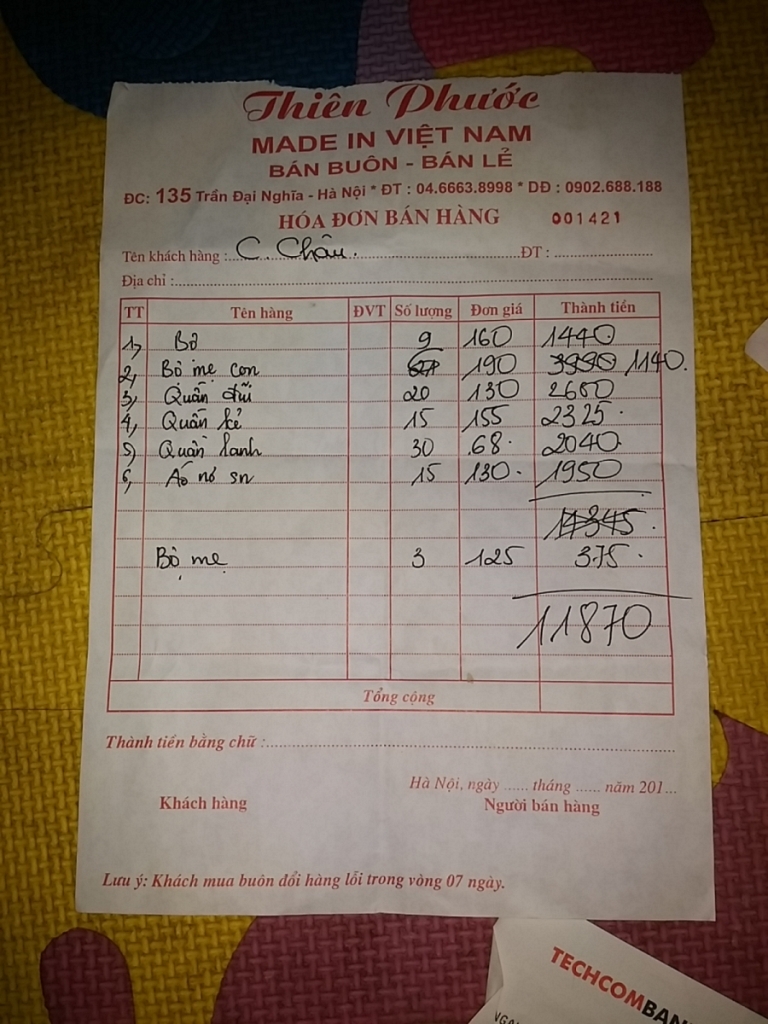 Thiên Phước
MADE IN VIỆT NAM
BÁN BUÔN - BÁN LẺ
ĐC: 135 Trần Đại Nghĩa - Hà Nội * ĐT : 04.6663.8998 * DĐ : 0902.688.188
HÓA ĐƠN BÁN HÀNG 001421
Tên khách hàng : C. Châu. ĐT :
Địa chỉ :
TT Tên hàng ĐVT Số lượng Đơn giá Thành tiền
1, Bộ 9 160 1440
2, Bộ mẹ con 190 3990 1140.
3, Quần đũi 20 130 2600
4, Quần kẻ 15 155 2325.
5, Quần lanh 30 68. 2040
6, Áo nỏ sn 15 130. 1950
14345.
Bộ mẹ 3 125 375.
11870
Tổng cộng
Thành tiền bằng chữ :
Hà Nội, ngày ...... tháng ...... năm 201...
Khách hàng Người bán hàng
Lưu ý: Khách mua buôn đổi hàng lỗi trong vòng 07 ngày.
TECHCOMBAN